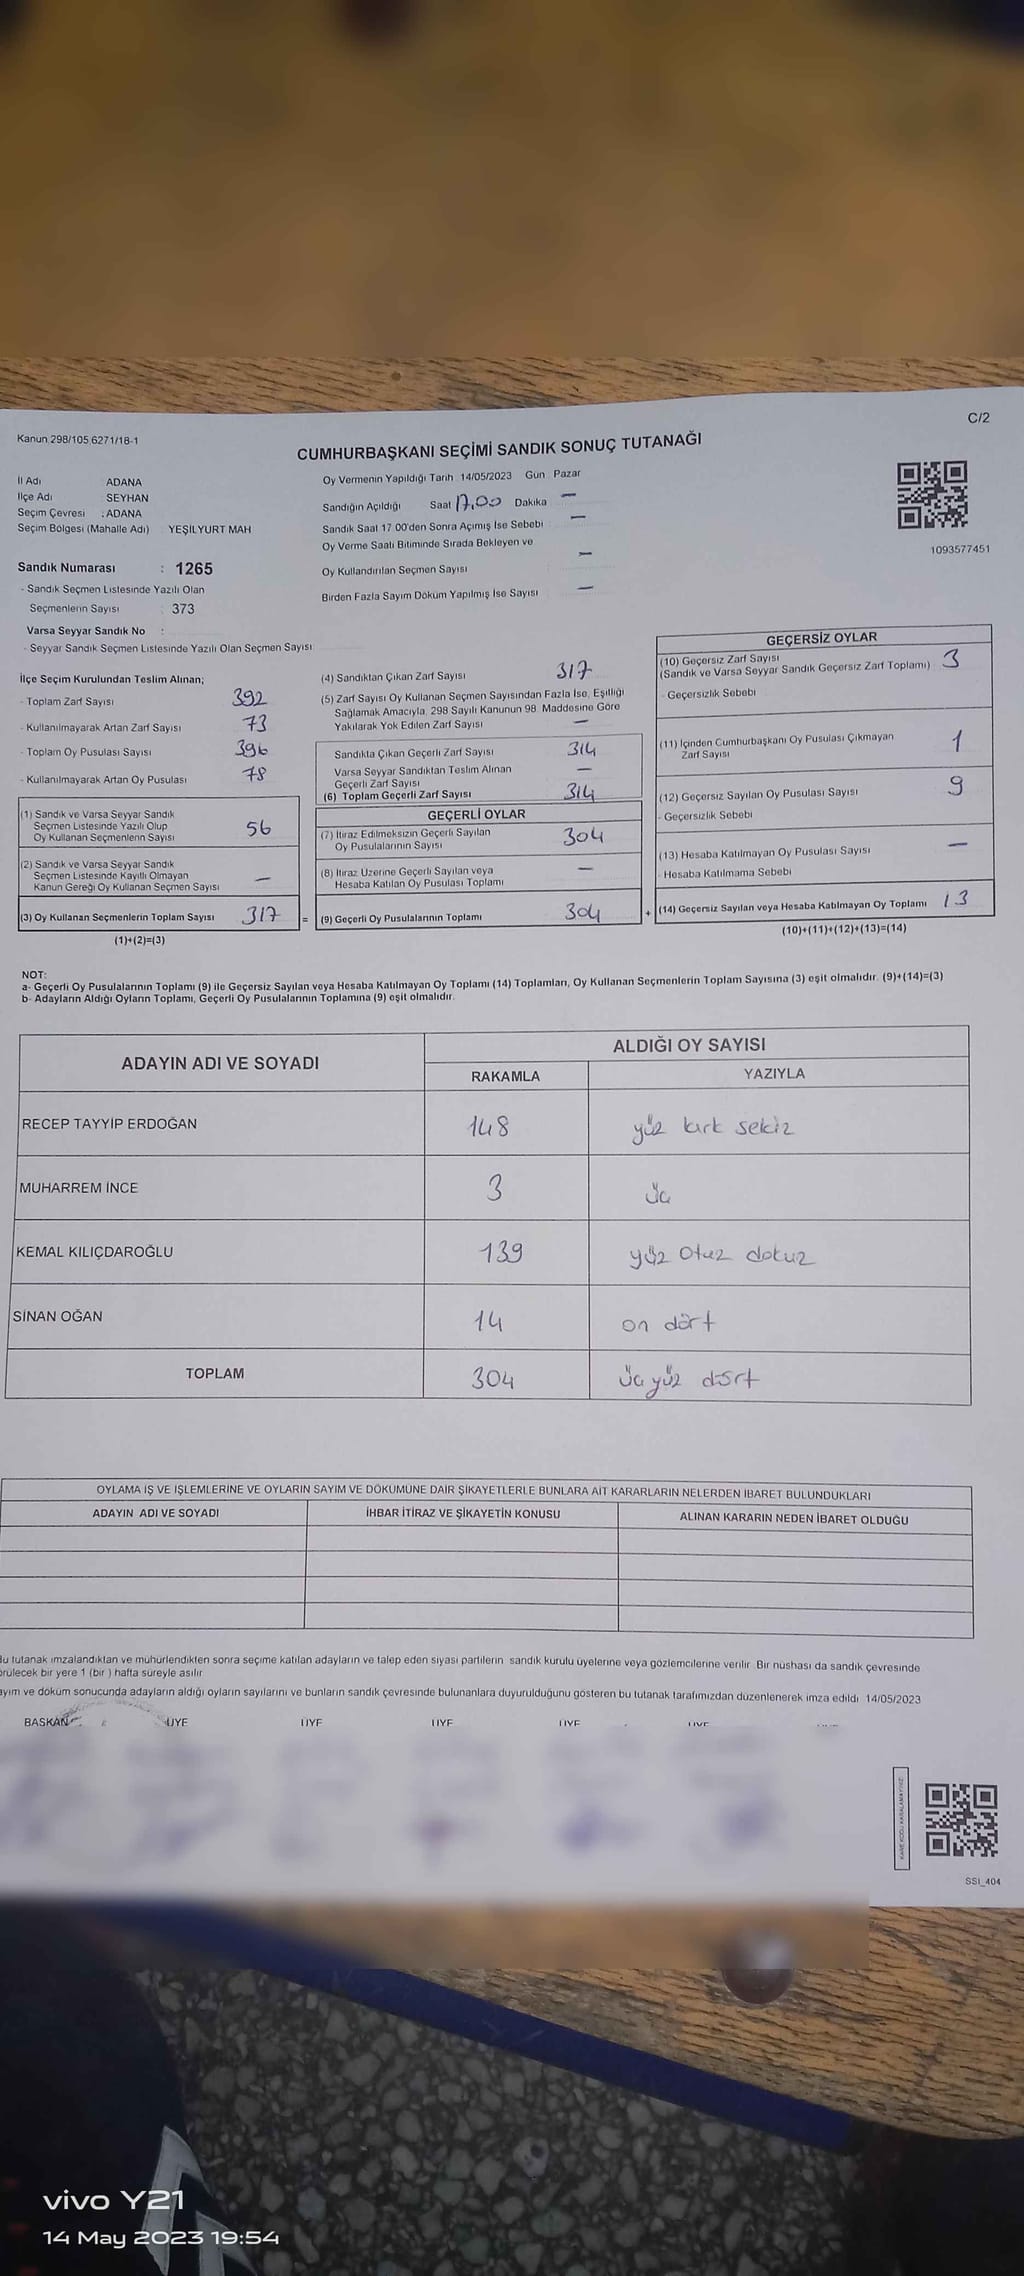 C/2
Kanun 298/105 6271/18-1
CUMHURBAŞKANI SEÇİMİ SANDIK SONUÇ TUTANAĞI
İl Adı ADANA
İlçe Adı : SEYHAN
Seçim Çevresi : ADANA
Seçim Bölgesi (Mahalle Adı) : YEŞİLYURT MAH
Oy Vermenin Yapıldığı Tarih 14/05/2023 Gün Pazar
Sandığın Açıldığı Saat 17,00 Dakika —
Sandık Saat 17 00'den Sonra Açımış İse Sebebi —
Oy Verme Saati Bitiminde Sırada Bekleyen ve
Oy Kullandırılan Seçmen Sayısı —
Birden Fazla Sayım Döküm Yapılmış İse Sayısı —
1093577451
Sandık Numarası : 1265
- Sandık Seçmen Listesinde Yazılı Olan
Seçmenlerin Sayısı : 373
Varsa Seyyar Sandık No :
- Seyyar Sandık Seçmen Listesinde Yazılı Olan Seçmen Sayısı
İlçe Seçim Kurulundan Teslim Alınan;
- Toplam Zarf Sayısı 392
- Kullanılmayarak Artan Zarf Sayısı 73
- Toplam Oy Pusulası Sayısı 396
- Kullanılmayarak Artan Oy Pusulası 78
(1) Sandık ve Varsa Seyyar Sandık
Seçmen Listesinde Yazılı Olup
Oy Kullanan Seçmenlerin Sayısı 56
(2) Sandık ve Varsa Seyyar Sandık
Seçmen Listesinde Kayıtlı Olmayan
Kanun Gereği Oy Kullanan Seçmen Sayısı —
(3) Oy Kullanan Seçmenlerin Toplam Sayısı 317
(1)+(2)=(3)
(4) Sandıktan Çıkan Zarf Sayısı 317
(5) Zarf Sayısı Oy Kullanan Seçmen Sayısından Fazla İse, Eşitliği
Sağlamak Amacıyla, 298 Sayılı Kanunun 98. Maddesine Göre
Yakılarak Yok Edilen Zarf Sayısı —
Sandıkta Çıkan Geçerli Zarf Sayısı 314
Varsa Seyyar Sandıktan Teslim Alınan
Geçerli Zarf Sayısı —
(6) Toplam Geçerli Zarf Sayısı 314
GEÇERLİ OYLAR
(7) İtiraz Edilmeksizin Geçerli Sayılan
Oy Pusulalarının Sayısı 304
(8) İtiraz Üzerine Geçerli Sayılan veya
Hesaba Katılan Oy Pusulası Toplamı —
= (9) Geçerli Oy Pusulalarının Toplamı 304 +
GEÇERSİZ OYLAR
(10) Geçersiz Zarf Sayısı
(Sandık ve Varsa Seyyar Sandık Geçersiz Zarf Toplamı) 3
- Geçersizlik Sebebi
(11) İçinden Cumhurbaşkanı Oy Pusulası Çıkmayan
Zarf Sayısı 1
(12) Geçersiz Sayılan Oy Pusulası Sayısı 9
- Geçersizlik Sebebi
(13) Hesaba Katılmayan Oy Pusulası Sayısı —
- Hesaba Katılmama Sebebi
(14) Geçersiz Sayılan veya Hesaba Katılmayan Oy Toplamı 13
(10)+(11)+(12)+(13)=(14)
NOT:
a- Geçerli Oy Pusulalarının Toplamı (9) ile Geçersiz Sayılan veya Hesaba Katılmayan Oy Toplamı (14) Toplamları, Oy Kullanan Seçmenlerin Toplam Sayısına (3) eşit olmalıdır. (9)+(14)=(3)
b- Adayların Aldığı Oyların Toplamı, Geçerli Oy Pusulalarının Toplamına (9) eşit olmalıdır.
ADAYIN ADI VE SOYADI ALDIĞI OY SAYISI
RAKAMLA YAZIYLA
RECEP TAYYİP ERDOĞAN 148 yüz kırk sekiz
MUHARREM İNCE 3 üç
KEMAL KILIÇDAROĞLU 139 yüz otuz dokuz
SİNAN OĞAN 14 on dört
TOPLAM 304 üç yüz dört
OYLAMA İŞ VE İŞLEMLERİNE VE OYLARIN SAYIM VE DÖKÜMÜNE DAİR ŞİKAYETLERLE BUNLARA AİT KARARLARIN NELERDEN İBARET BULUNDUKLARI
ADAYIN ADI VE SOYADI İHBAR İTİRAZ VE ŞİKAYETİN KONUSU ALINAN KARARIN NEDEN İBARET OLDUĞU
Bu tutanak imzalandıktan ve mühürlendikten sonra seçime katılan adayların ve talep eden siyasi partilerin sandık kurulu üyelerine veya gözlemcilerine verilir Bir nüshası da sandık çevresinde
örülecek bir yere 1 (bir ) hafta süreyle asılır
ayım ve döküm sonucunda adayların aldığı oyların sayılarını ve bunların sandık çevresinde bulunanlara duyurulduğunu gösteren bu tutanak tarafımızdan düzenlenerek imza edildi 14/05/2023
BAŞKAN ÜYE ÜYE ÜYE ÜYE ÜYE
KARE KODU KARALAMAYINIZ!
SSI_404
vivo Y21
14 May 2023 19:54